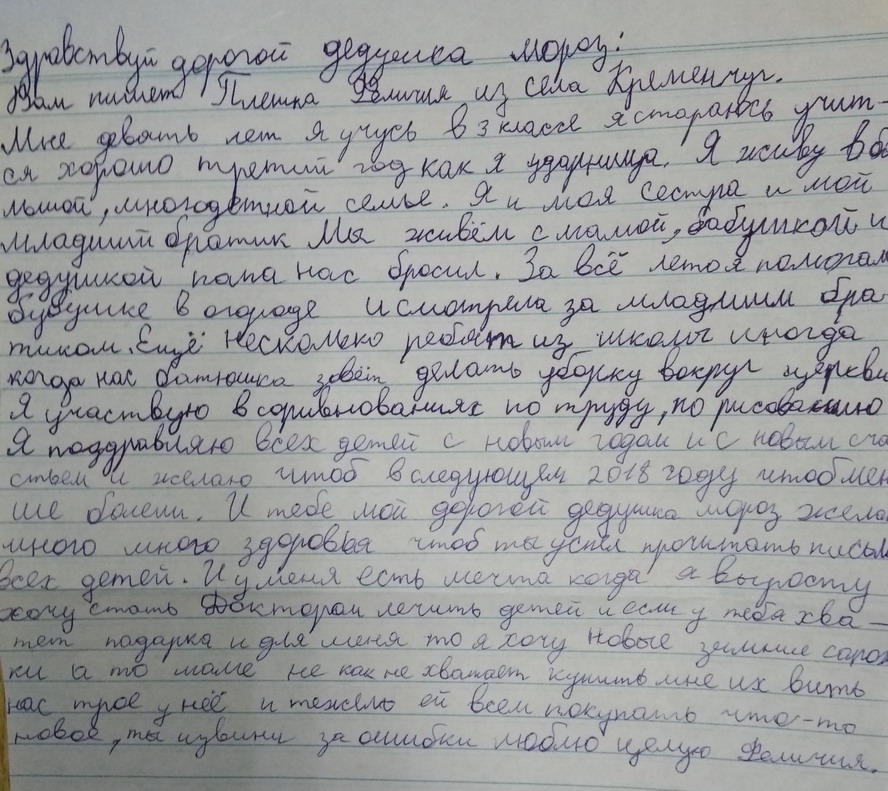 Здравствуй дорогой дедушка мороз!
Вам пишет Плешка Феличия из села Кременчуг.
Мне девять лет я учусь в 3 классе я стараюсь учит-
ся хорошо третий год как я ударница. Я живу в бо
льшой, многодетной семье. Я и моя сестра и мой
младший братик Мы живём с мамой, бабушкой и
дедушкой папа нас бросил. За всё лето я помогала
бубушке в огороде и смотрела за младшим бра-
тиком. Ещё несколько ребят из школы иногда
когда нас батюшка зовёт делать уборку вокруг церкви
Я участвую в соривнованиях по труду, по рисованию
Я поздравляю всех детей с новым годам и с новым сча
стьем и желаю чтоб в следующем 2018 году чтоб мен
ше болели. И тебе мой дорогой дедушка мороз жела
много много здоровья чтоб ты успел прочитать письм
всех детей. И у меня есть мечта когда я выросту
хочу стать Доктарам лечить детей и если у тебя хва-
тет падарка и для меня то я хочу новые зимние сапож
ки а то маме не как не хватает купить мне их вить
нас трое у неё и тежело ей всем покупать что-то
новое, ты извини за ошибки люблю целую Феличия.